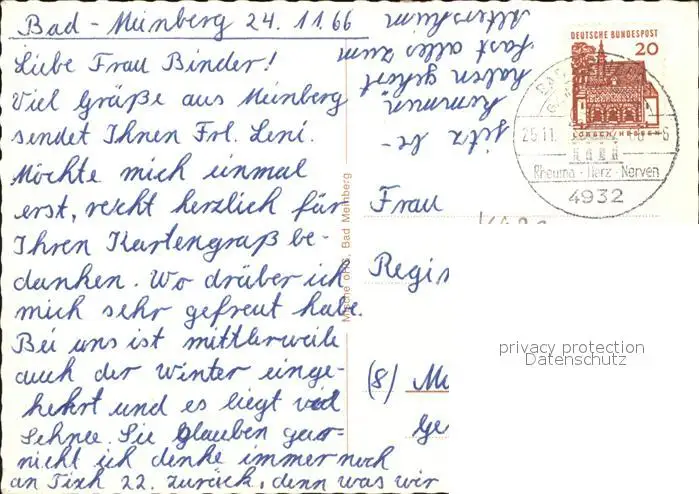 Bad-Meinberg 24.11.66
Liebe Frau Binder!
Viel Gräße aus Meinberg
sendet Ihnen Frl. Leni.
Möchte mich einmal
erst, recht herzlich für
Ihren Kartengraß be-
danken. Wo drüber ich
mich sehr gefreut habe.
Bei uns ist mittlerweile
auch der Winter einge-
kehrt und es liegt viel
Schnee. Sie glauben gar-
nicht ich denke immer noch
an Tisch 22. zurück, denn was wir
sitz be-
kommen
haben gehört
fast alles zum
Altersheim
DEUTSCHE BUNDESPOST
20
LORSCH/HESSEN
25.11.
Rheuma - Herz - Nerven
4932
Mische oHG, Bad Meinberg
Frau
Regis
(8) Mü
Ge
privacy protection
Datenschutz